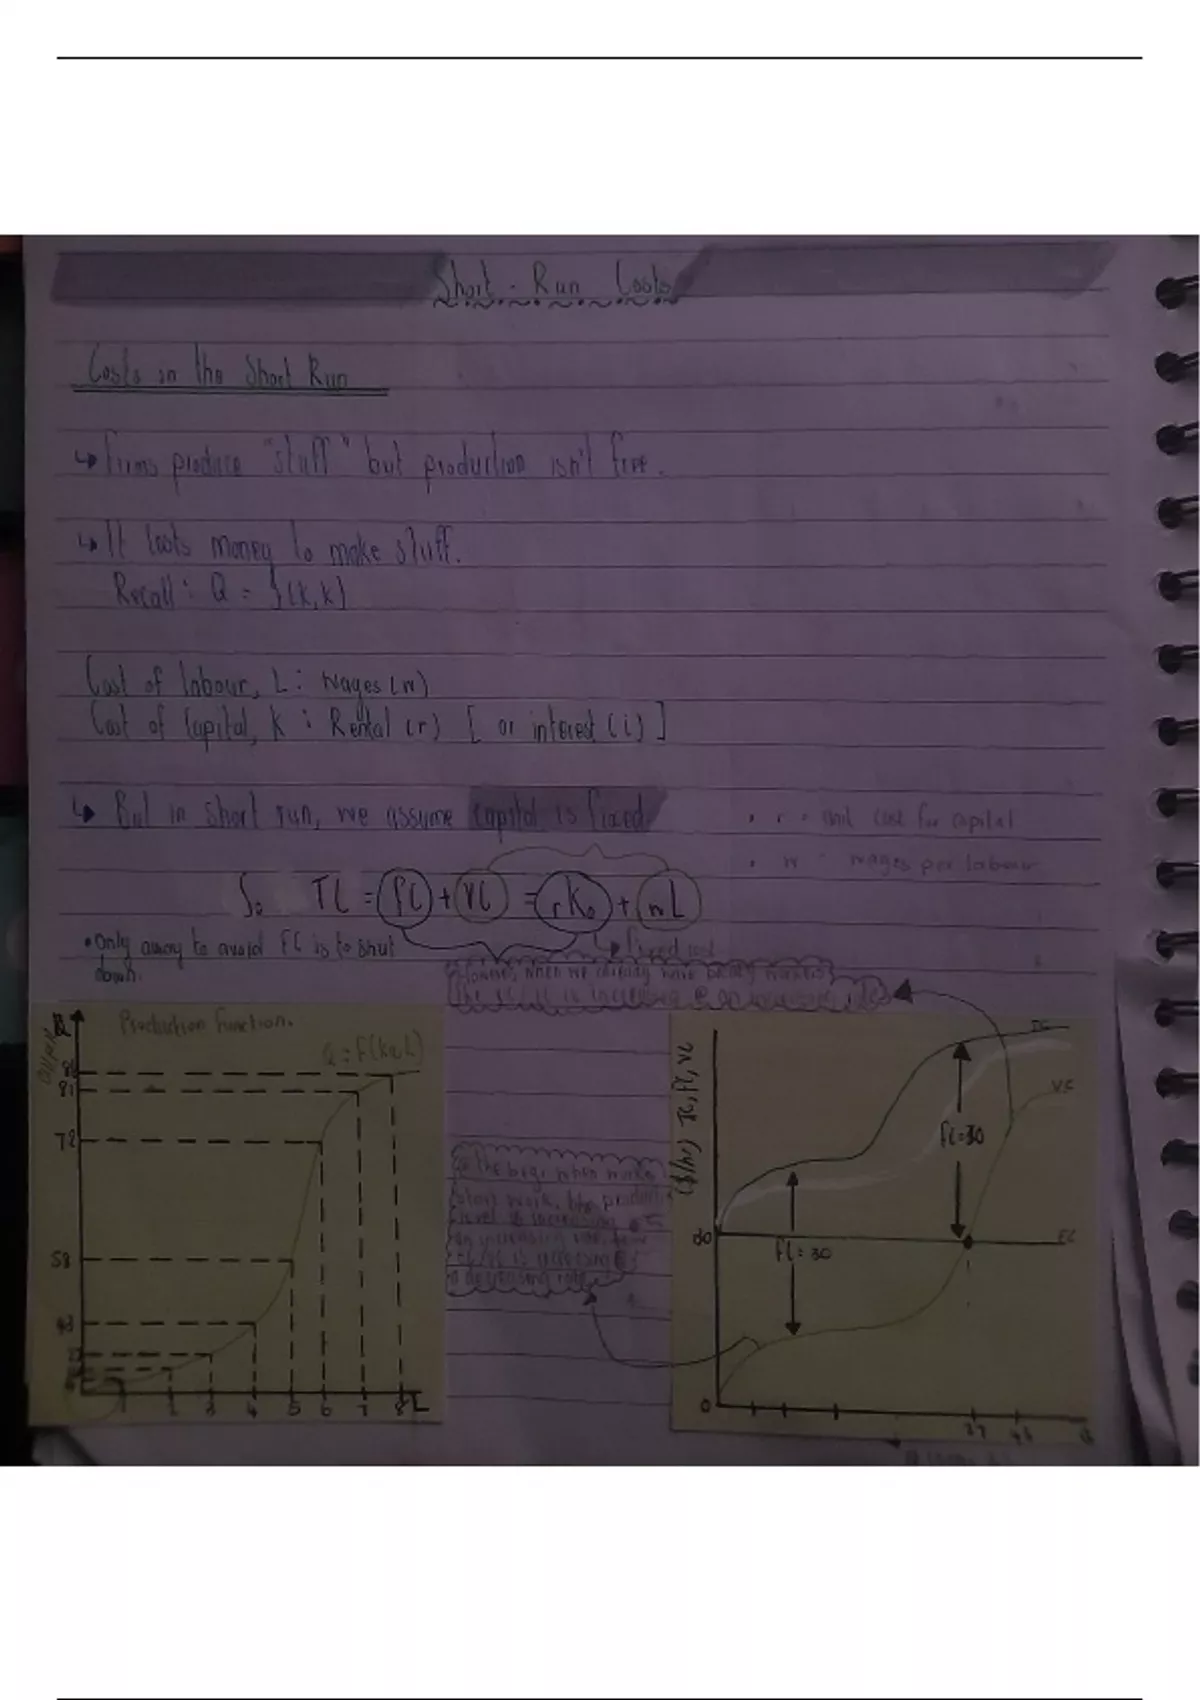 Short-Run Costs
Costs in the Short Run
↳ Firms produce "stuff" but production isn't free.
↳ It costs money to make stuff.
Recall: Q = f(k,k)
Cost of labour, L: Wages (w)
Cost of Capital, K: Rental (r) [or interest (i)]
↳ But in short run, we assume capital is fixed
• r = unit cost for capital
• w = wages per labour
So TC = FC + VC = rK₀ + wL
↳ Fixed cost
• Only away to avoid FC is to shut
down.
However, when we already have many workers
the is increasing @ an increasing rate
Production Function.
Q = F(K₀,L)
86
81
72
58
43
1 2 3 4 5 6 7 8 L
@ the beg. when workers
start work, the product.
level is increasing @
an increasing rate
is increasing @
a decreasing rate
($/yr) TC, FC, VC
TC
VC
FC=30
30
FC
FC=30
0